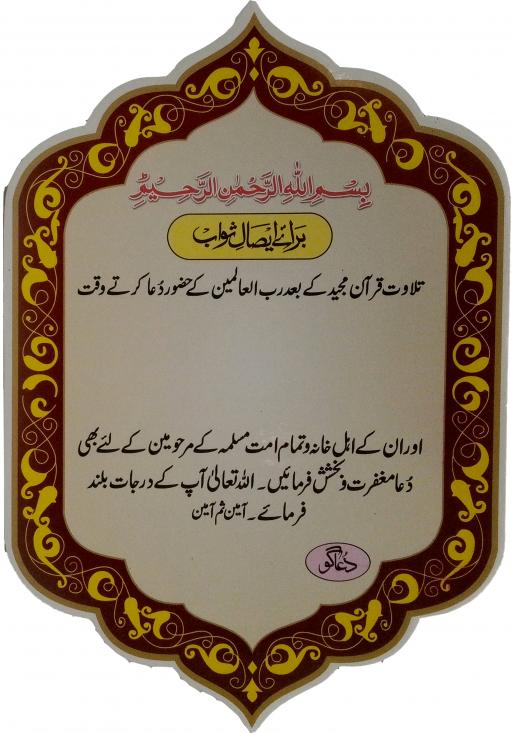 بِسْمِ اللهِ الرَّحْمٰنِ الرَّحِيْمِ
برائے ایصالِ ثواب
تلاوت قرآن مجید کے بعد رب العالمین کے حضور دُعا کرتے وقت
اور ان کے اہل خانہ و تمام امت مسلمہ کے مرحومین کے لئے بھی
دُعا مغفرت و بخشش فرمائیں۔ اللہ تعالیٰ آپ کے درجات بلند
فرمائے۔ آمین ثم آمین
دُعاگو